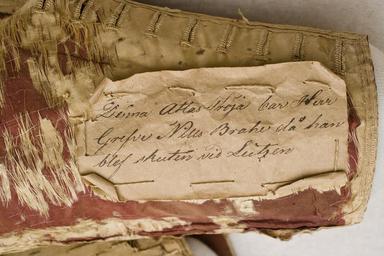 Denna Atlas tröja bar Herr
Grefve Nills Brahe då han
blef skuten vid Lützen